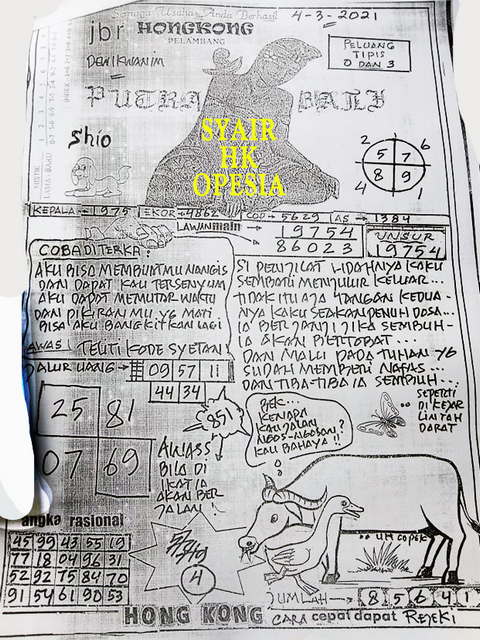 Semoga Usaha Anda Berhasil
4-3-2021
jbr HONGKONG
PELAMBANG
DEWIKWANIM
PELUANG
TIPIS
0 DAN 3
PUTRA BALI
SYAIR
HK
OPESIA
shio
2 6
5 7
8 9
4 1
KEPALA → 1975 EKOR → 4862 COP → 5629 AS → 1384
LAWAN main → 19754
→ 86023
UNSUR
19754
COBA DITERKA:
AKU BISA MEMBUATMU NANGIS
DAN DAPAT KAU TERSENYUM
AKU DAPAT MEMUTAR WAKTU
DAN PIKIRAN MU YG MATI
BISA AKU BANGKITKAN LAGI
AWAS TELITI KODE SYETAN!
SI PENJILAT LIDAHNYA KAKU
SEMBARI MENJULUR KELUAR...
TIDAK ITU AJA TANGAN KEDUA-
NYA KAKU SEAKAN PENUH DOSA...
IA BERJANJI JIKA SEMBUH-
IA AKAN BERTOBAT...
DAN MALU PADA TUHAN YG
SUDAH MEMBERI NAFAS...
DAN TIBA-TIBA IA SEMBUH...
JALUR UANG → 09 57 11
44 34
25 81
07 69
851
AWASS
BILA DI
IKAT IA
AKAN BER
JALAN!
BEK...
KENAPA
KAU JALAN
NGOS-NGOSAN?
KAU BAHAYA!!
SEPERTI
DI KEJAR
LINTAH
DARAT
angka rasional
45 99 43 55 19
77 18 04 96 31
52 92 75 84 70
91 54 61 90 53
4
UH COPEK
JUMLAH → 8 5 6 4 1
HONG KONG CARA cepat dapat REJEKI